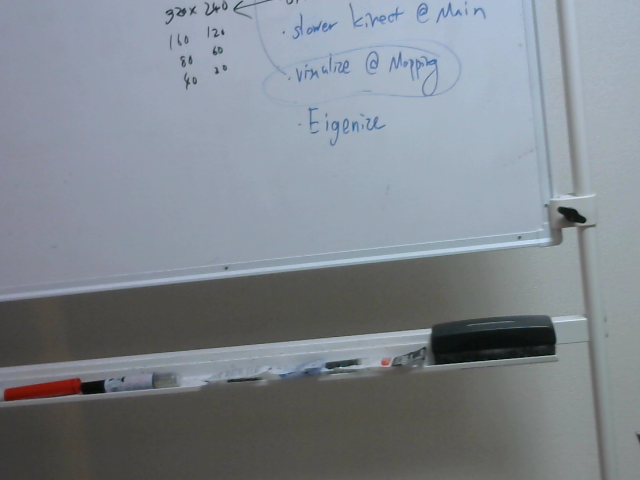 320 x 240
160 120
80 60
40 20
· slower kinect @ Main
· visualize @ Mapping
· Eigenize